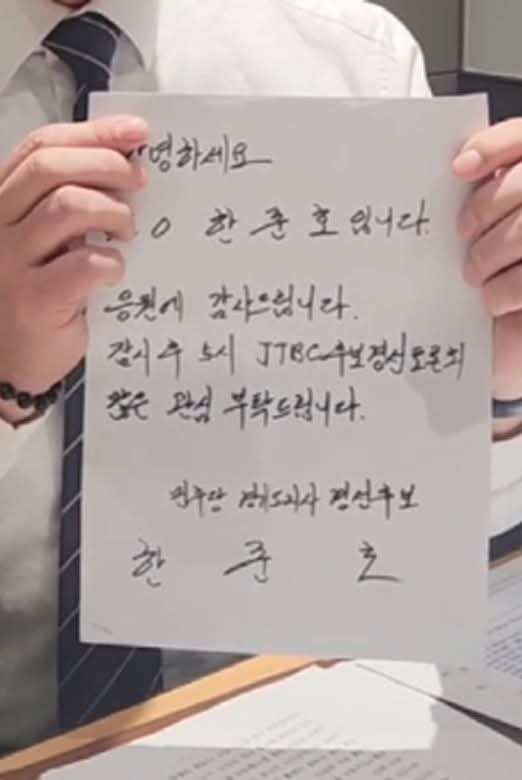 안녕하세요
한 준 호 입니다.
응원에 감사드립니다.
잠시 후 5시 JTBC 후보경선토론의
많은 관심 부탁드립니다.
민주당 경기도지사 경선후보
한 준 호